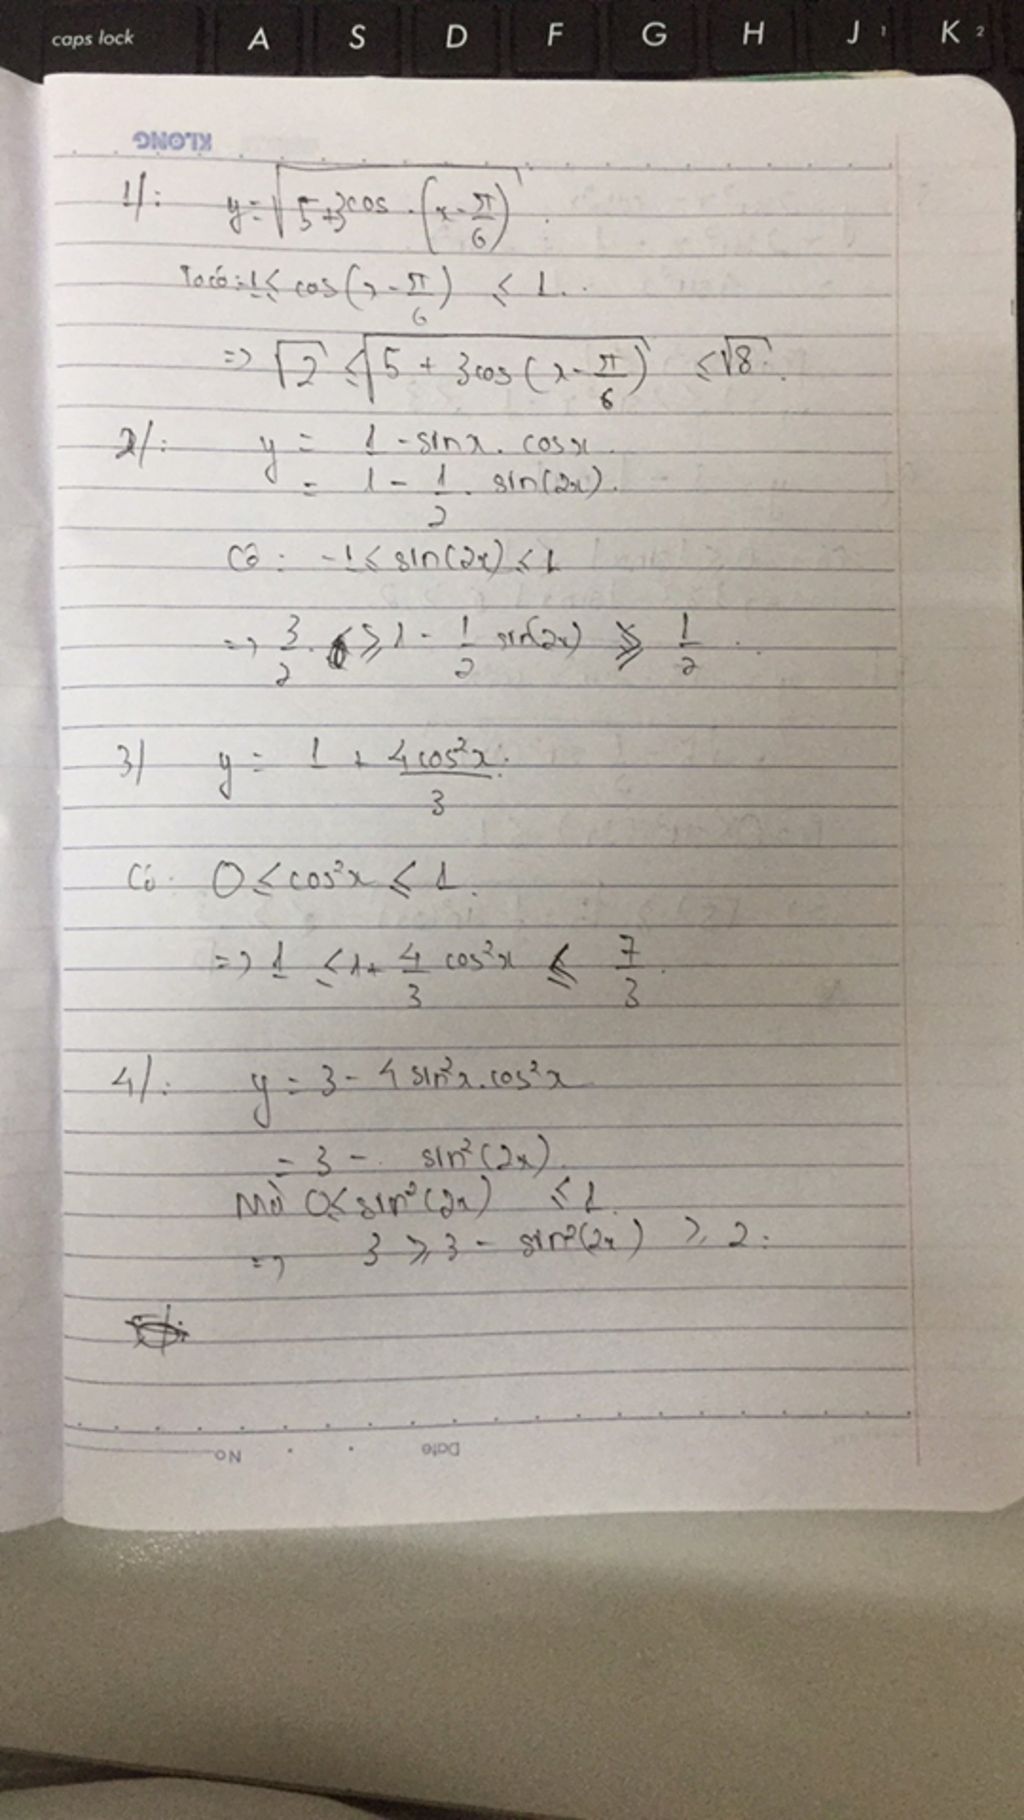 caps lock A S D F G H J 1 K 2
KLONG
1/: y = √(5+3cos.(x - π/6)).
Ta có: -1 ≤ cos(x - π/6) ≤ 1.
=> √2 ≤ √(5 + 3cos(x - π/6)) ≤ √8.
2/: y = 1 - sinx. cosx.
= 1 - 1/2. sin(2x).
Có: -1 ≤ sin(2x) ≤ 1
=> 3/2 ≥ 1 - 1/2 sin(2x) ≥ 1/2.
3/ y = 1 + 4cos²x/3.
Có 0 ≤ cos²x ≤ 1.
=> 1 ≤ 1+ 4/3 cos²x ≤ 7/3.
4/: y = 3 - 4 sin²x.cos²x
= 3 - sin²(2x).
Mà 0 ≤ sin²(2x) ≤ 1.
=> 3 ≥ 3 - sin²(2x) ≥ 2.
No Date